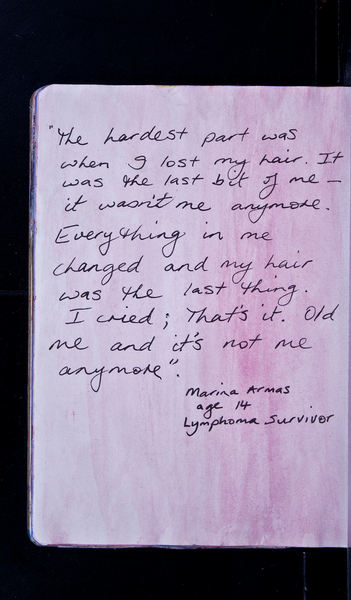 "The hardest part was
when I lost my hair. It
was the last bit of me –
it wasn't me anymore.
Everything in me
changed and my hair
was the last thing.
I cried; That's it. Old
me and it's not me
anymore".
Marina Armas
age 14
Lymphoma Survivor